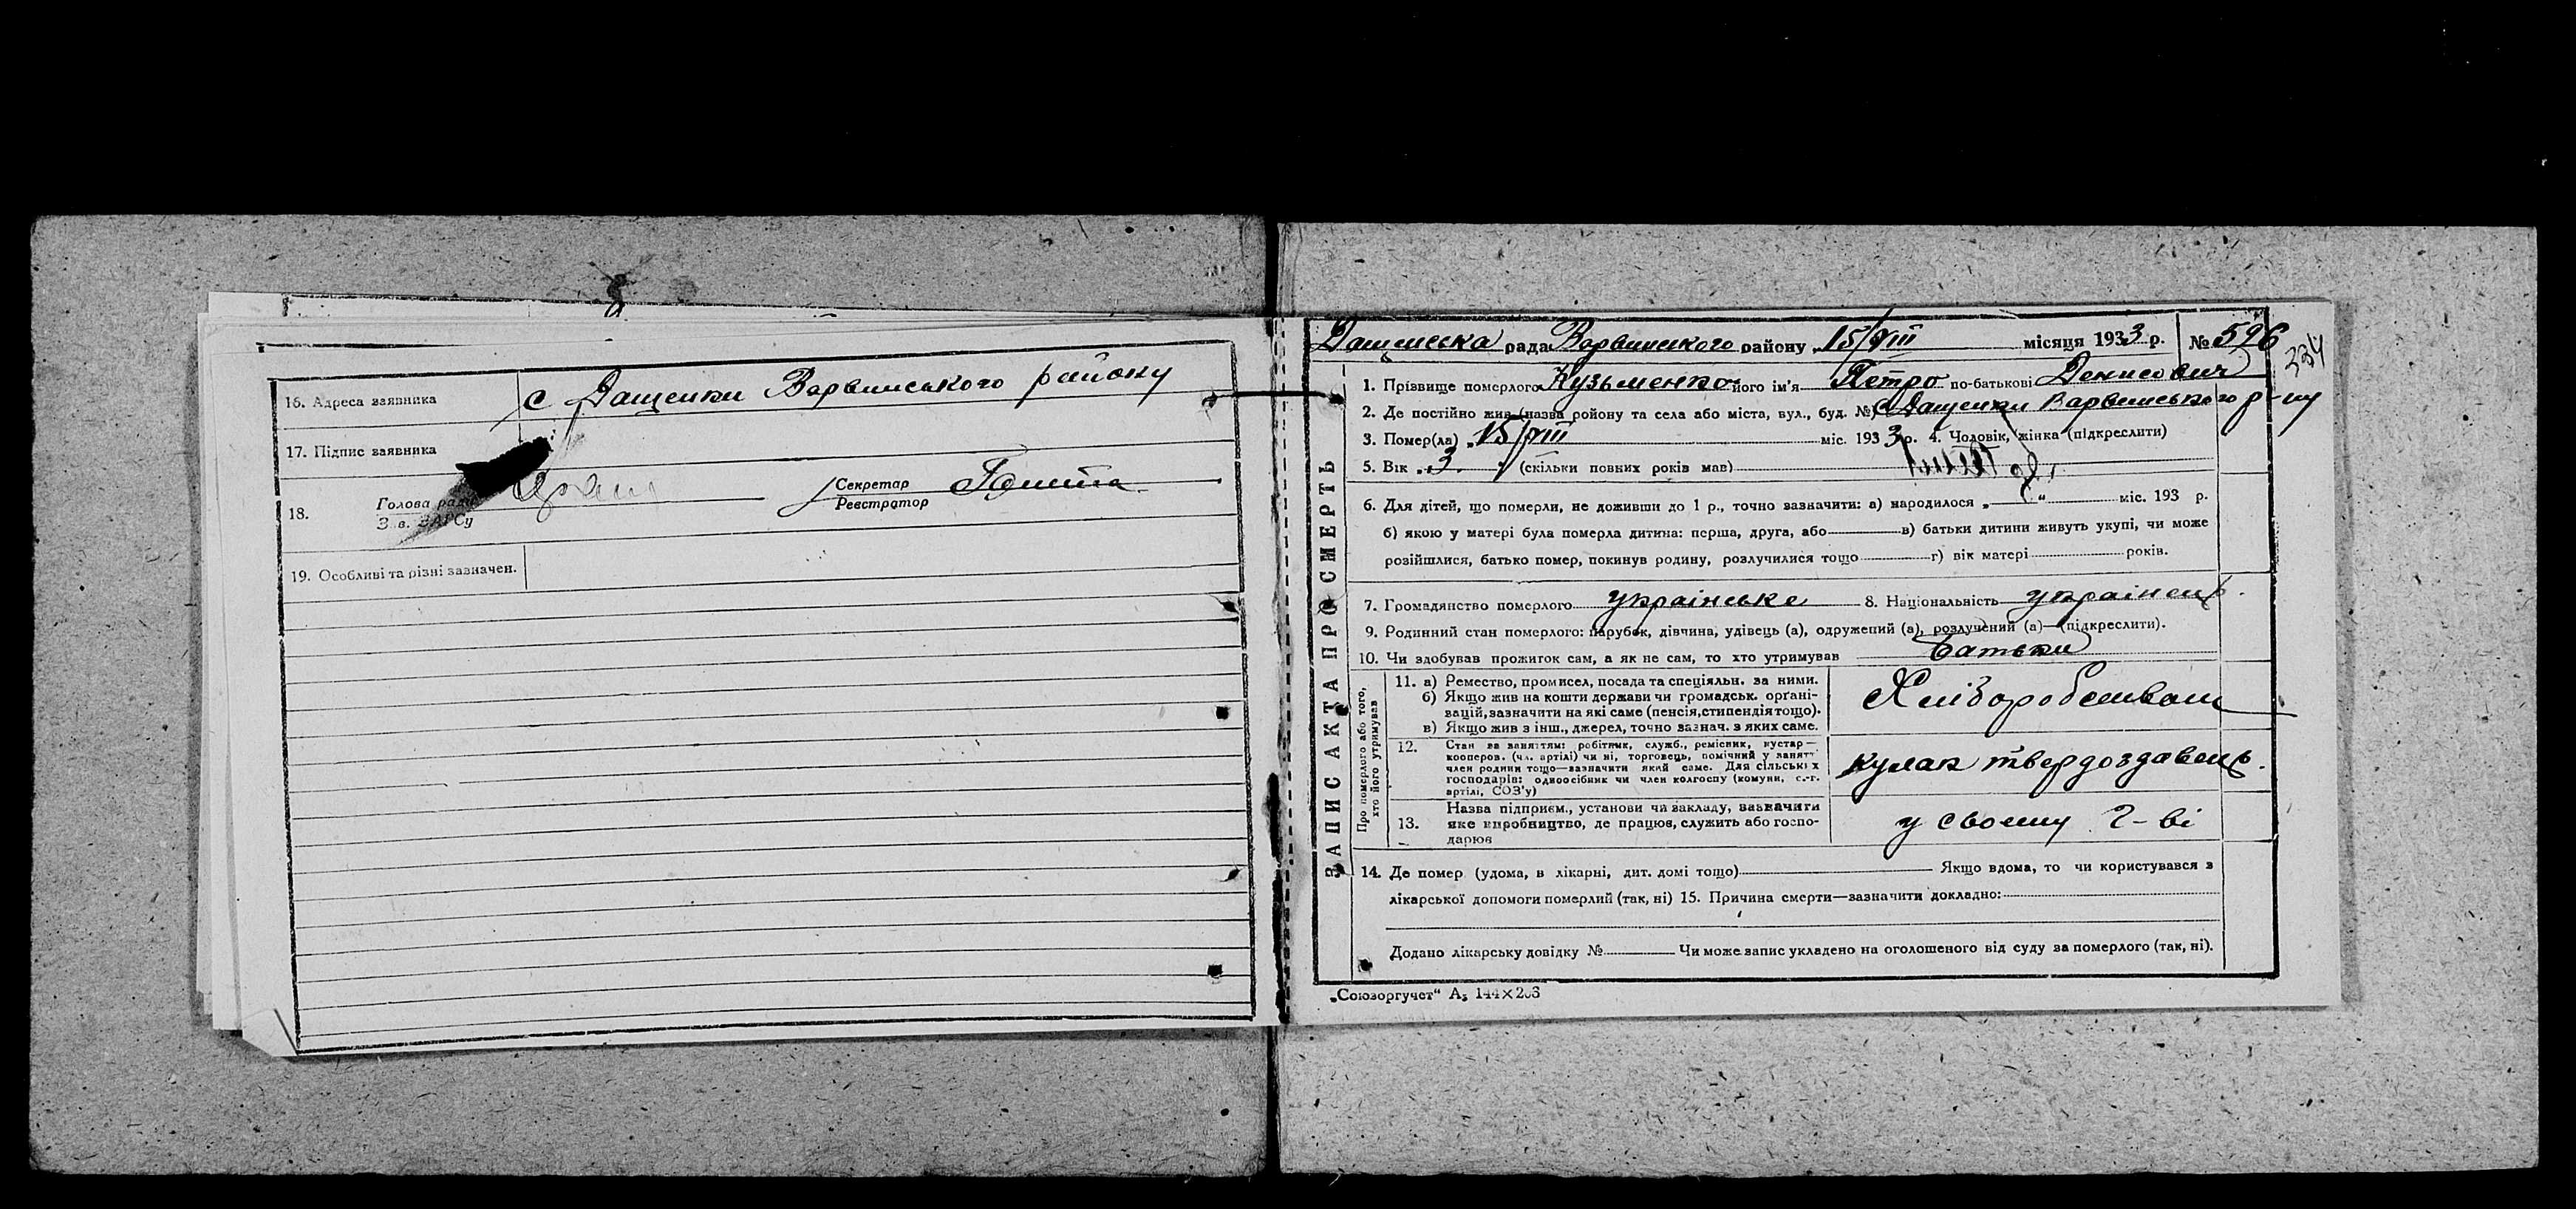 16. Адреса заявника с Дащенки Варвинського району
17. Підпис заявника
18. Голова ради
Зав. ЗАРСу
Секретар
Реєстратор
19. Особливі та різні зазначен.
ЗАПИС АКТА ПРО СМЕРТЬ
Дащенська рада Варвинського району „15/VIII місяця 1933 р. № 596
334
1. Прізвище померлого Кузьменко його ім'я Петро по-батькові Денисович
2. Де постійно жив (назва району та села або міста, вул., буд. №) с Дащенки Варвинського р-ну
3. Помер(ла) „15/VIII міс. 1933 р. 4. Чоловік, жінка (підкреслити)
5. Вік „3 (скільки повних років мав)
6. Для дітей, що померли, не доживши до 1 р., точно зазначити: а) народилося „ “ міс. 193 р.
б) якою у матері була померла дитина: перша, друга, або в) батьки дитини живуть укупі, чи може
розійшлися, батько помер, покинув родину, розлучилися тощо г) вік матері років.
7. Громадянство померлого українське 8. Національність українець
9. Родинний стан померлого: парубок, дівчина, удівець (а), одружений (а), розлучений (а)—(підкреслити).
10. Чи здобував прожиток сам, а як не сам, то хто утримував батьки
Про померлого або того,
хто його утримував
11. а) Ремество, промисел, посада та спеціяльн. за ними.
б) Якщо жив на кошти держави чи громадськ. органі-
зацій, зазначити на які саме (пенсія, стипендія тощо).
в) Якщо жив з інш., джерел, точно зазнач. з яких саме.
Хліборобством
12. Стан за заняттям: робітник, служб., ремісник, кустар—
кооперов. (чл. артілі) чи ні, торговець, помічний у занятт
член родини тощо—зазначити який саме. Для сільських
господарів: одноосібник чи член колгоспу (комуни, с.-г.
артілі, СОЗ'у)
кулак твердоздавець.
13. Назва підприєм., установи чи закладу, зазначити
яке виробництво, де працює, служить або госпо-
дарює
у своему г-ві
14. Де помер (удома, в лікарні, дит. домі тощо) Якщо вдома, то чи користувався з
лікарської допомоги померлий (так, ні) 15. Причина смерти—зазначити докладно:
Додано лікарську довідку № Чи може запис укладено на оголошеного від суду за померлого (так, ні).
„Союзоргучет“ А₅ 144×203